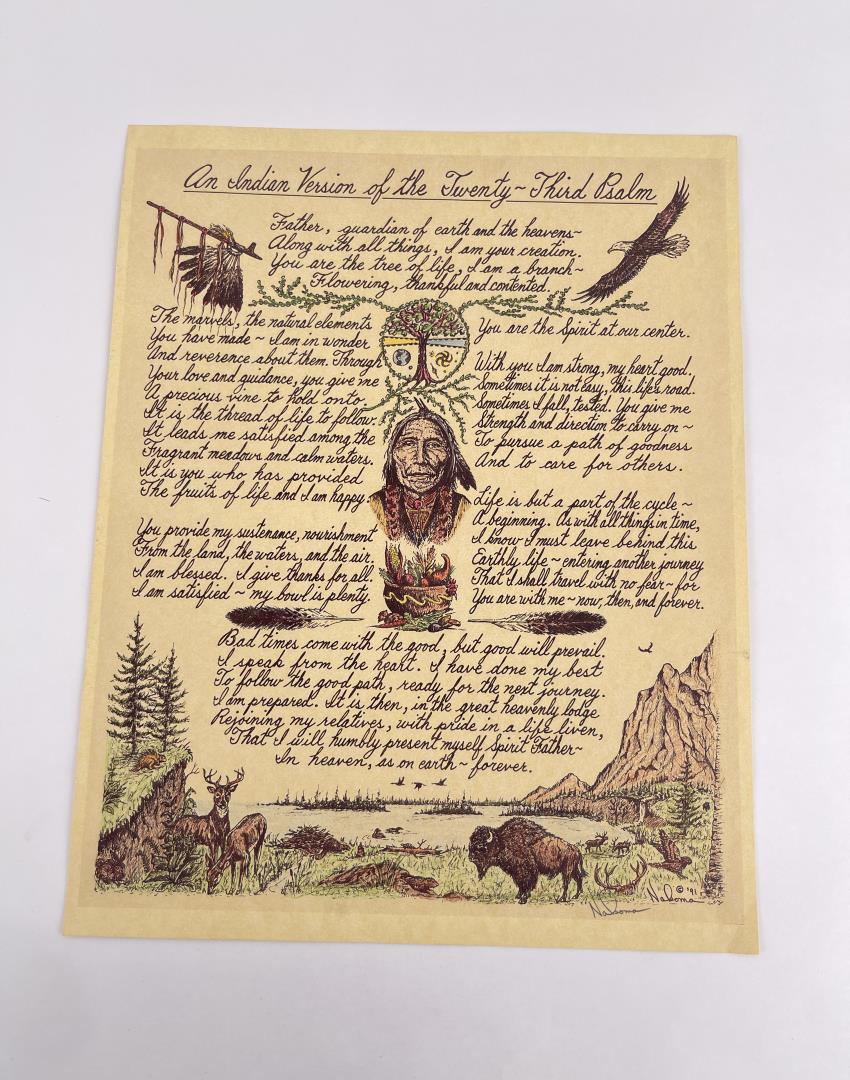 An Indian Version of the Twenty~Third Psalm
Father, guardian of earth and the heavens~
Along with all things, I am your creation.
You are the tree of life, I am a branch~
Flowering, thankful and contented.
The marvels, the natural elements
You have made ~ I am in wonder
And reverence about them. Through
Your love and guidance, you give me
A precious vine to hold onto.
It is the thread of life to follow.
It leads me satisfied among the
Fragrant meadows and calm waters.
It is you who has provided
The fruits of life and I am happy.
You provide my sustenance, nourishment
From the land, the waters, and the air.
I am blessed. I give thanks for all.
I am satisfied ~ my bowl is plenty.
You are the Spirit at our center.
With you I am strong, my heart good.
Sometimes it is not easy, this life's road.
Sometimes I fall, tested. You give me
Strength and direction to carry on ~
To pursue a path of goodness
And to care for others.
Life is but a part of the cycle ~
A beginning. As with all things in time,
I know I must leave behind this
Earthly life ~ entering another journey
That I shall travel with no fear ~ for
You are with me ~ now, then, and forever.
Bad times come with the good, but good will prevail.
I speak from the heart. I have done my best
To follow the good path, ready for the next journey.
I am prepared. It is then, in the great heavenly lodge
Rejoining my relatives, with pride in a life liven,
That I will humbly present myself Spirit Father~
In heaven, as on earth ~ forever.
© '91
Naloma
Naloma